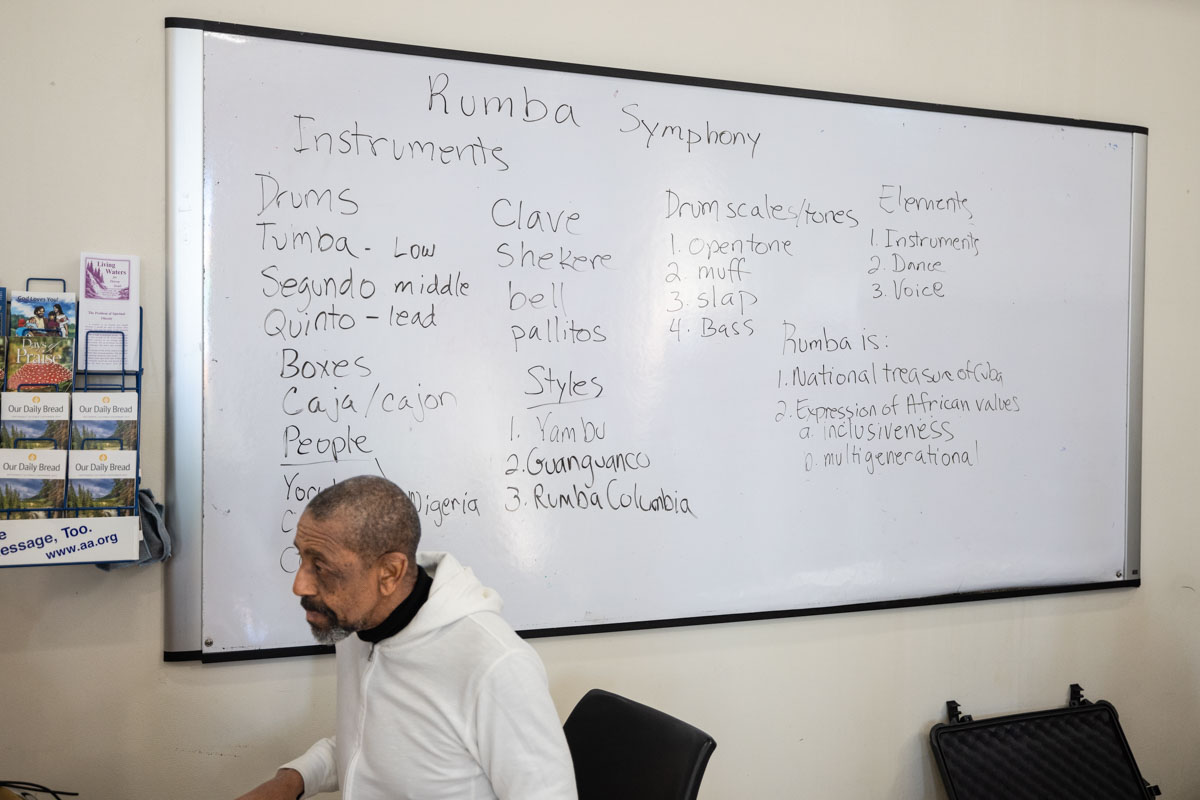 Rumba Symphony
Instruments
Drums
Tumba - Low
Segundo middle
Quinto - lead
Boxes
Caja/cajon
People
Nigeria
Clave
Shekere
bell
pallitos
Styles
1. Yambu
2. Guanguanco
3. Rumba Columbia
Drum scales/tones
1. open tone
2. muff
3. slap
4. Bass
Elements
1. Instruments
2. Dance
3. Voice
Rumba is:
1. National treasure of Cuba
2. Expression of African values
a. inclusiveness
multigenerational
Living
Waters
God Loves You!
Days of
Praise
Our Daily Bread
Our Daily Bread
Our Daily Bread
Our Daily Bread
essage, Too.
www.aa.org